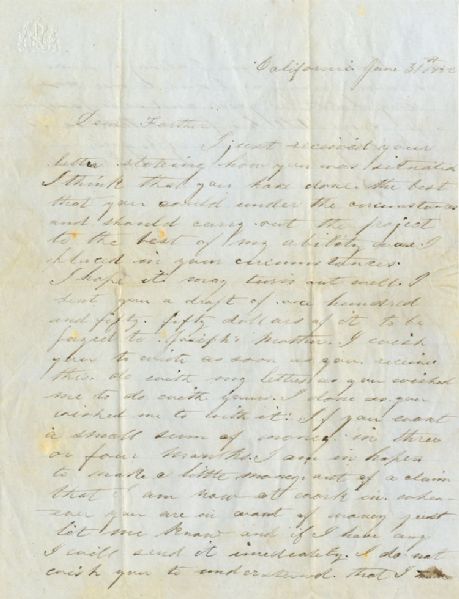 California June 31st
Dear Father
I just received your
letter stating how you was situated
I think that you have done the best
that you could under the circumstances
and should carry out the project
to the best of my ability was I
placed in your circumstances.
I hope it may turn out well. I
sent you a draft of one hundred
and fifty. fifty dollars of it to be
to Joseph's Mother. I wish
you to write as soon as you receive
this. do with my letter as you wished
me to do with yours. I done as you
wished me to with it. If you want
a small sum of money in three
or four months. I am in hopes
to make a little money out of a claim
that I am now at work in. when-
ever you are in want of money just
let me know and if I have any
I will send it imediately. I do not
wish you to understand that I